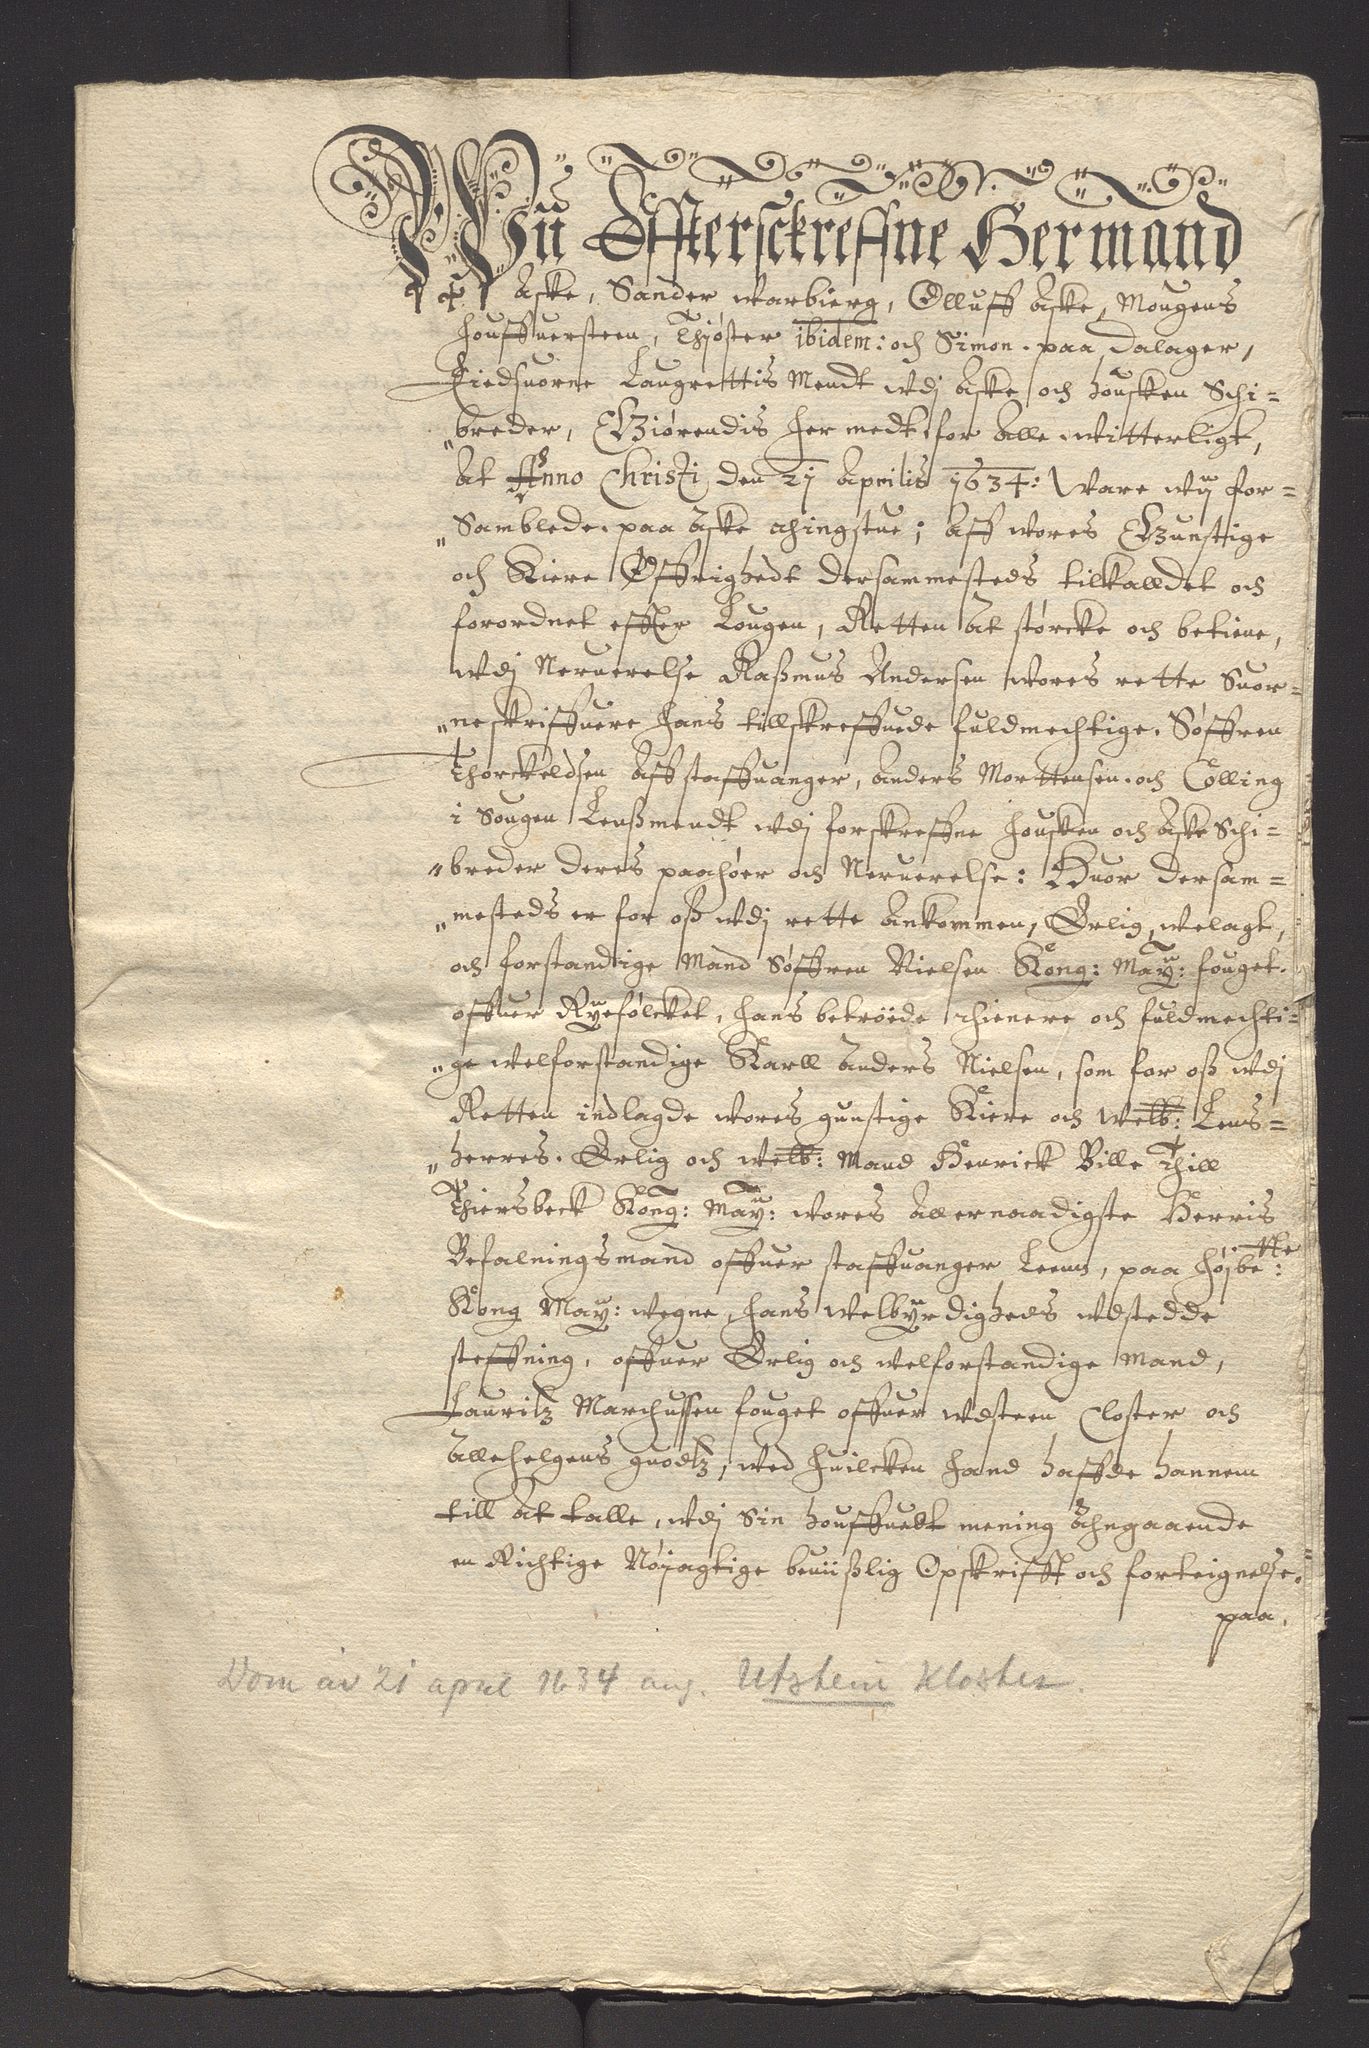 Wii Effterschreffne Hermand
Aske, Sander Warbierg, Olluff Aske, Mougens
Houffuersteen, Thjøster ibidem: och Simon paa Dalager,
Eiedsuorne Laugrettis Mendt wdj Aske och Housken Schi=
breder, Giørendis her medt for Alle witterligt,
At Anno Christi den 21 Aprilis 1634: Ware wij for=
Samblede paa Aske thingstue; Aff wores Gunstige
och Kiere Øffrighedt dersammesteds tilkalldet och
forordnet effter Lougen, Retten At størcke och betiene,
wdj Neruerelse Rassmus Andersen wores rette Suor=
neskriffuere hans tillskreffuede fuldmechtige. Søffren
Thorckeldsen Aff Staffuanger, Anders Morttensen och Colling
i Sougen Lenssmendt wdj forskreffne Housken och Aske Schi=
breder deres paahøer och Neruerelse: Huor dersam=
mesteds er for oss wdj rette Ankommen, Erlig, welagt,
och forstandige Mand Søffren Nielsen Kong: May: fouget
offuer Ryefølcket, hans betroede thienere och fuldmechti=
ge welforstandige Karll Anders Nielsen, som for oss wdj
Retten indlagde wores gunstige Kiere och Welb: Lens=
herres. Erlig och welb: Mand Henrick Bille Thill
Thiersbeck Kong: May: wores Allernaadigste Herris
Befalningsmand offuer Staffuanger Leenn, paa høybe:te
Kong May: wegne, hans welbyrdigheds wdstedde
steffning, offuer Erlig och welforstandige Mand,
Lauritz Marchussen fouget offuer wdsteen Closter och
Allehelgens guodtz, wed huilcken hand haffde hannem
till At talle, wdj Sin houffuedt mening Ahngaaende
en Richtige Nøyagtige beuiisslig Opskrifft och forteignelse
paa
Dom av 21 april 1634 ang. Utstein Kloster.